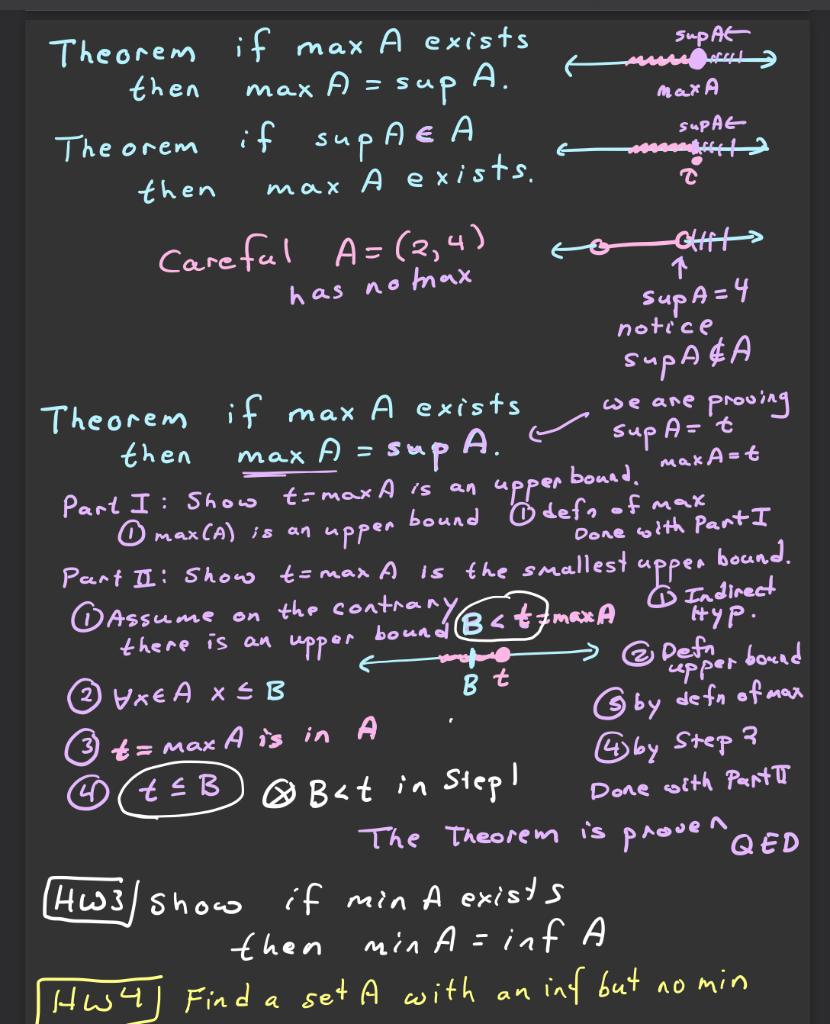 Theorem if max A exists
then max A = sup A.
sup A ←
max A
Theorem if sup A ∈ A
then max A exists.
sup A ←
Careful A = (2,4)
has no max
↑
sup A = 4
notice
sup A ∉ A
Theorem if max A exists
then max A = sup A.
we are proving
sup A = t
max A = t
Part I : Show t = max A is an upper bound.
① max(A) is an upper bound ① defn of max
Done with Part I
Part II : Show t = max A is the smallest upper bound.
① Assume on the contrary
there is an upper bound B < t = max A
① Indirect
Hyp.
B t
② Defn
upper bound
② ∀x∈A x ≤ B
③ by defn of max
③ t = max A is in A
④ by Step 2
④ t ≤ B ⊗ B < t in Step 1
Done with Part II
The Theorem is proven
QED
HW3 Show if min A exists
then min A = inf A
HW4 Find a set A with an inf but no min